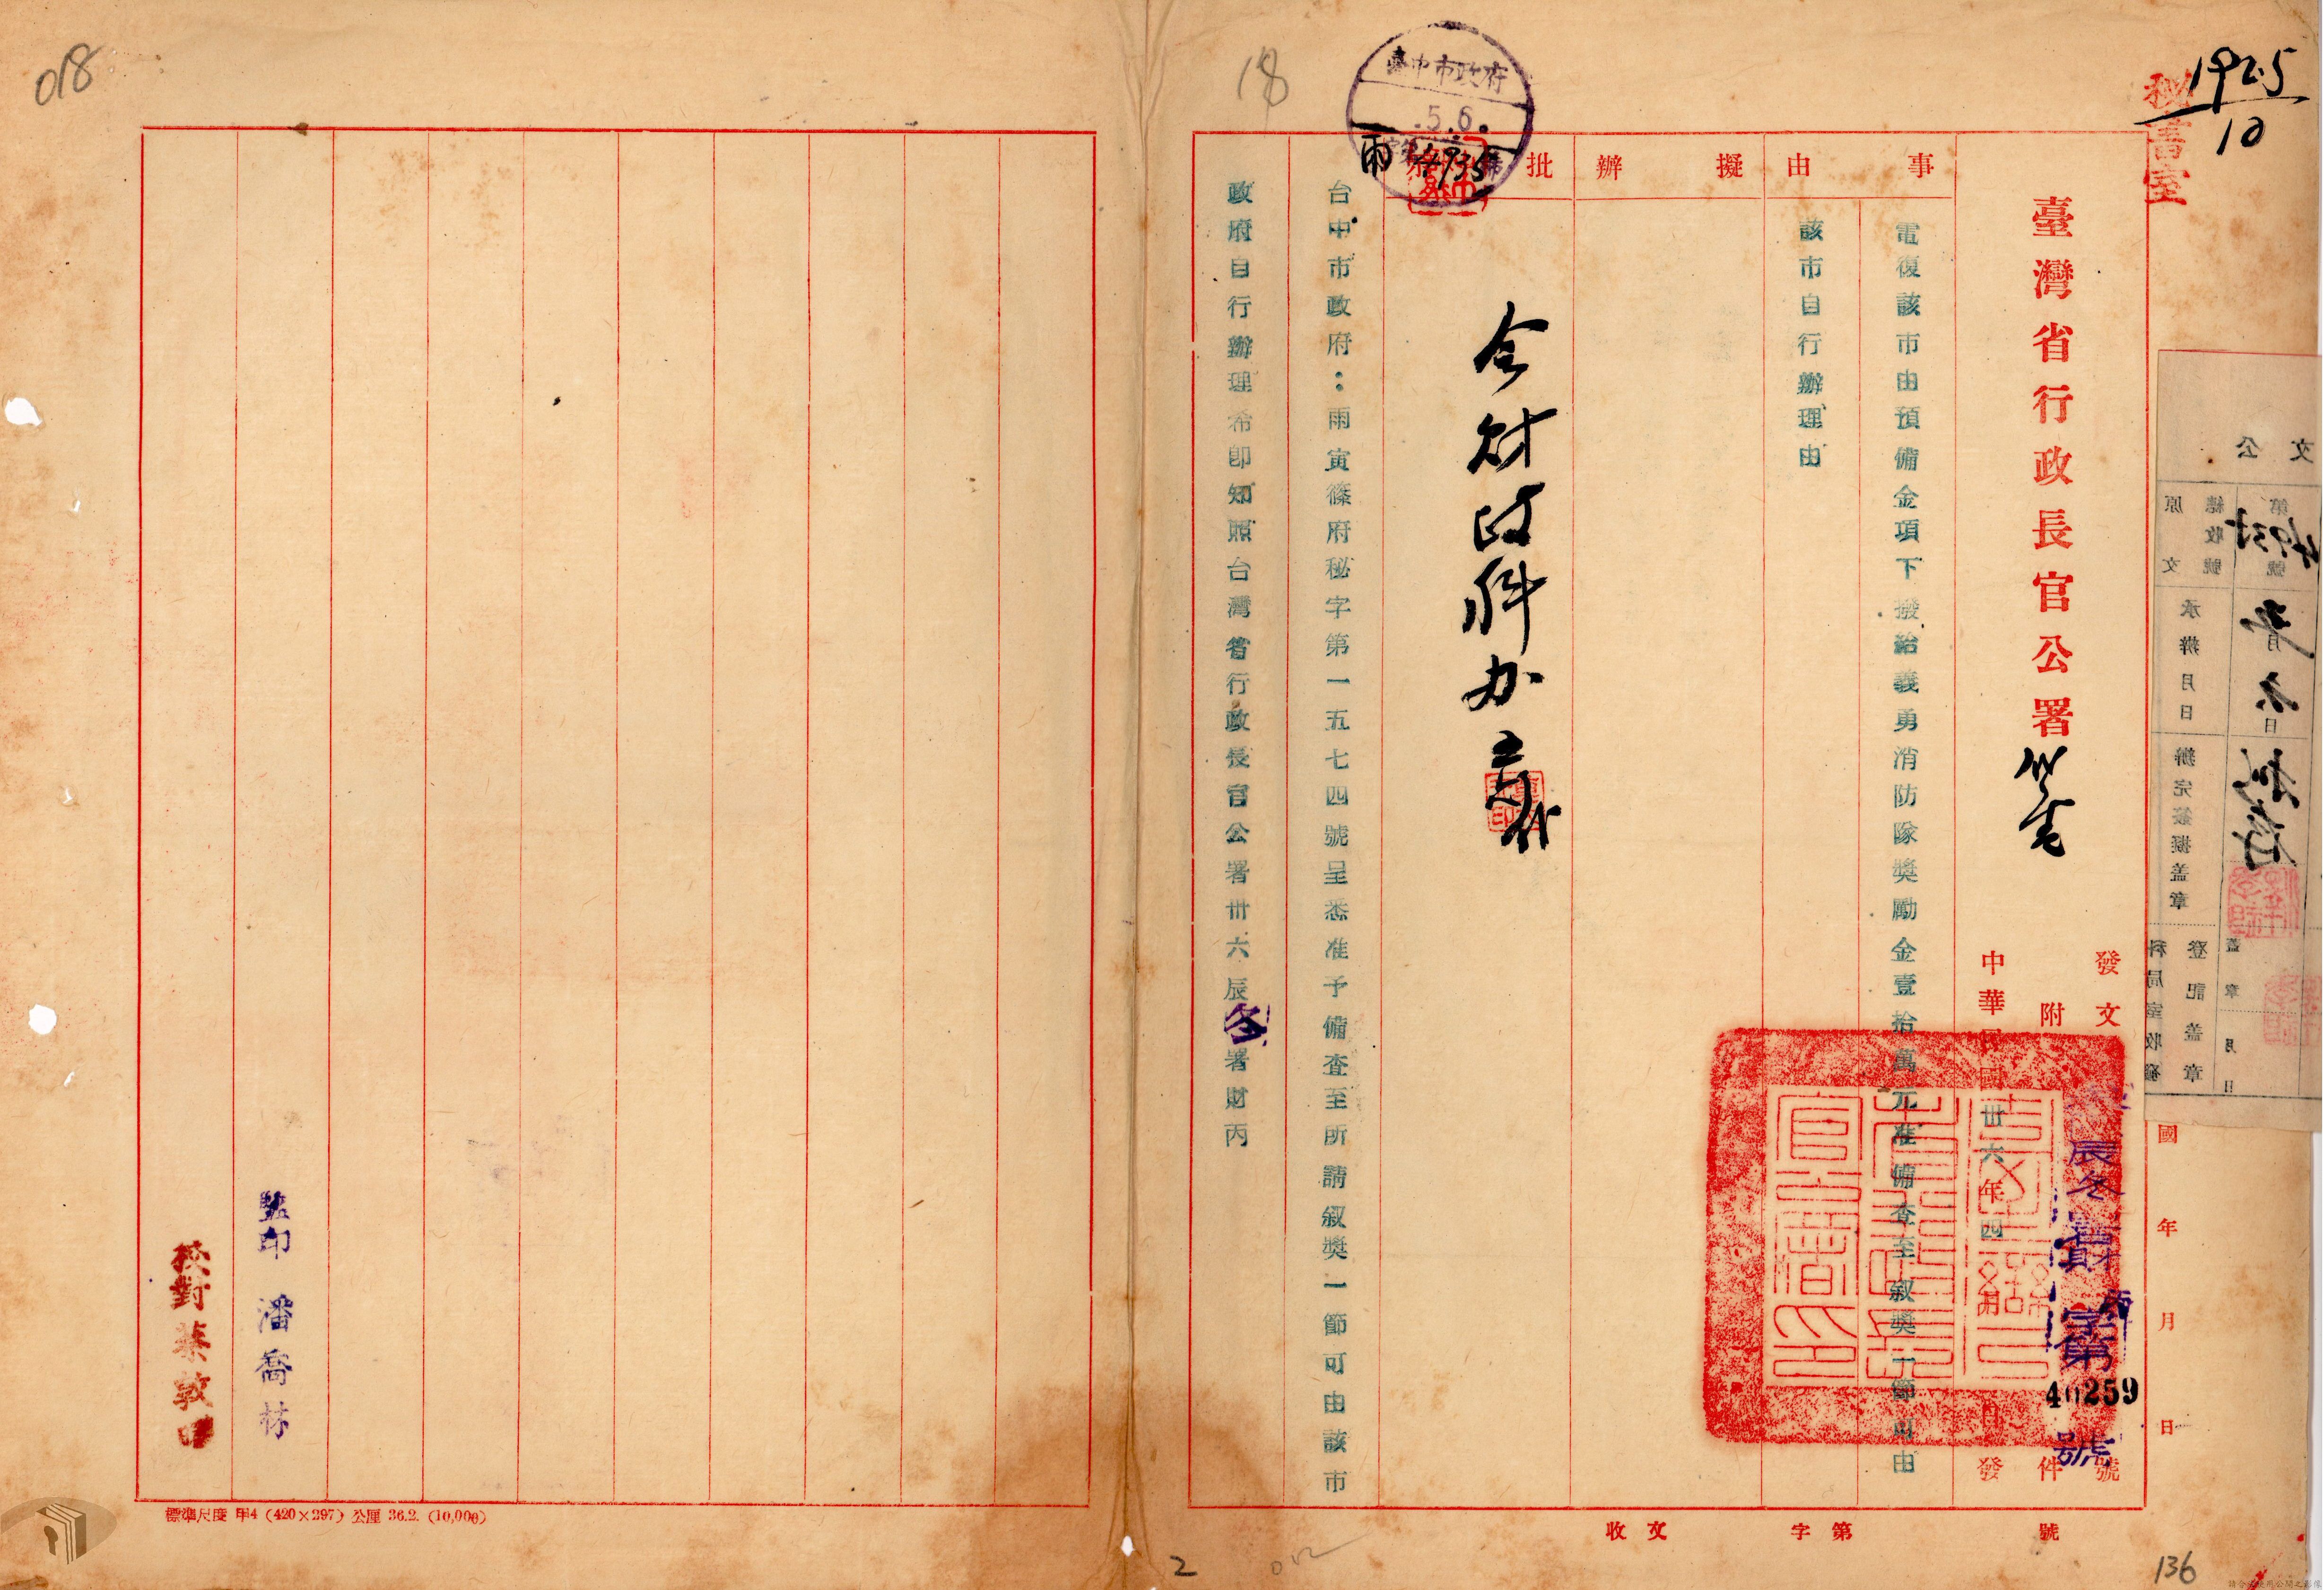 秘書室
1925
10
臺灣省行政長官公署
代電
發文
附
件
號
辰冬
財
丙
字第
40259
號
中華民國卅六年四月
日發
事由
電復該市由預備金項下撥給義勇消防隊獎勵金壹拾萬元准備查至叙獎一節可由
該市自行辦理由
擬辦
批
臺中市政府
.5.6.
雨
4935
令財政科办
台中市政府：雨寅篠府秘字第一五七四號呈悉准予備查至所請叙獎一節可由該市
政府自行辦理希即知照台灣省行政長官公署卅六辰冬署財丙
監印 潘喬林
校對 葉敦
標準尺度 甲4 (420×297) 公厘 36.2. (10,000)
收文
字第
號
國
年
月
日
018
18
2
136
公文
原文
總收號
第4935號
承辦月日
月
日
辦完簽擬蓋章
登記蓋章
科局室收發
蓋章
月
日